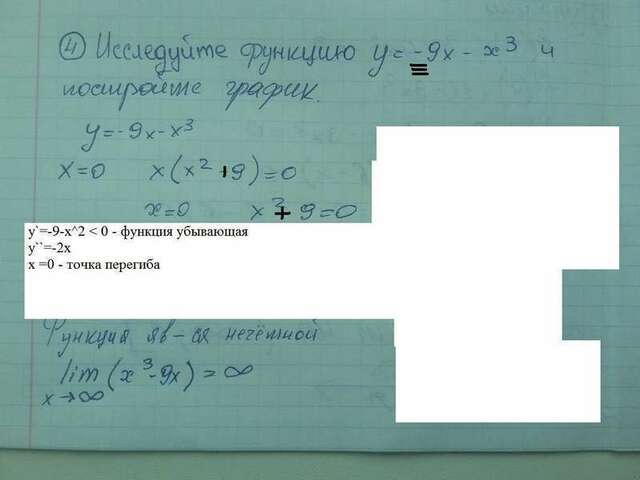 ④ Исследуйте функцию y = -9x - x³ и
постройте график.
y = -9x - x³
x=0 x(x² + 9) = 0
x=0 x² + 9 = 0
y`=-9-x^2 < 0 - функция убывающая
y``=-2x
x =0 - точка перегиба
Функция яв-ся нечётной
lim (x³ - 9x) = ∞
x→∞